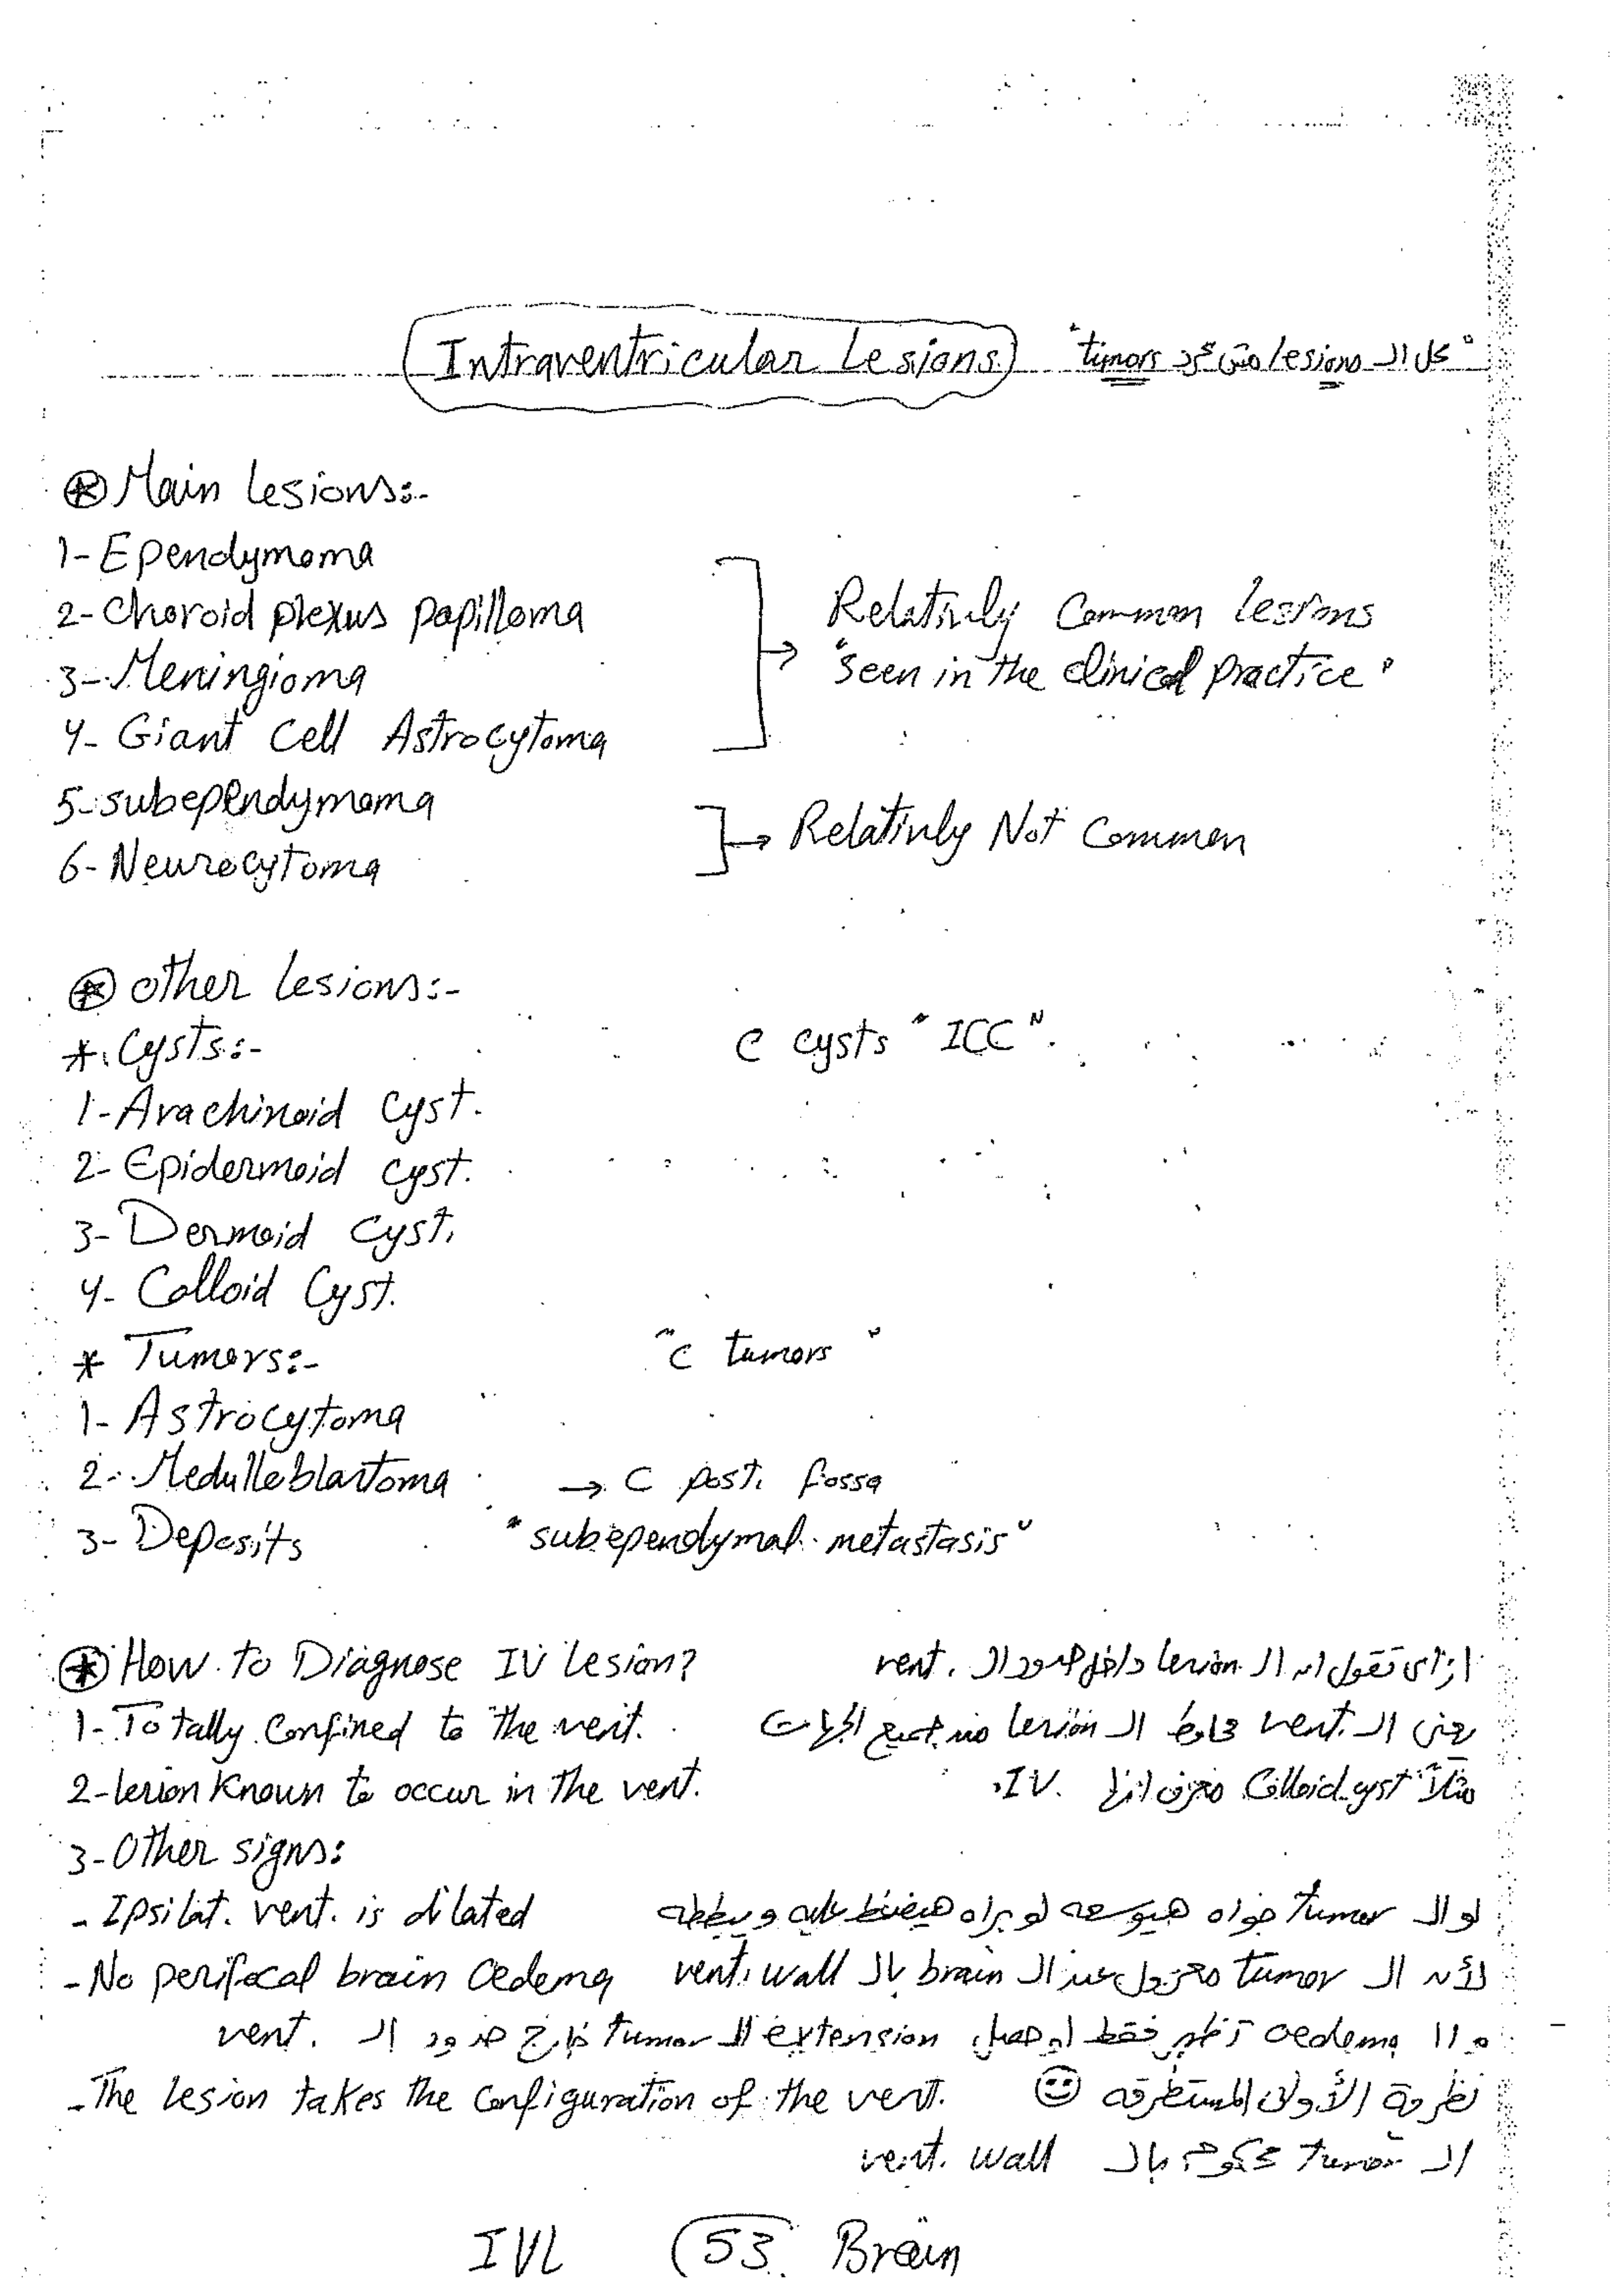 Intraventricular Lesions "كل ال lesions مش مجرد tumors"
⊛ Main lesions:-
1- Ependymoma
2- Choroid plexus papilloma
3- Meningioma
4- Giant Cell Astrocytoma
Relativly Common lesions
"seen in the clinical practice"
5- subependymoma
6- Neurocytoma
Relativly Not Common
⊛ other lesions:-
*. Cysts:- C cysts "ICC".
1- Arachinoid cyst.
2- Epidermoid cyst.
3- Dermoid cyst.
4- Colloid Cyst.
* Tumors:- "C tumors"
1- Astrocytoma
2- Medulloblastoma → C post. fossa
3- Deposits "subependymal metastasis"
⊛ How to Diagnose IV lesion? ازاى تقول ان ال lesion داخل حدود ال vent.
1- Totally Confined to the vent. يعنى ال vent. محاوط ال lesion من جميع الجهات
2- lesion Known to occur in the vent. مثلاً Colloid cyst معروف انها IV.
3- Other signs:
- Ipsilat. vent. is dilated لو ال tumor جواه هيوسعه لو براه هيضغط عليه و يططه
- No perifocal brain Oedema لأن ال tumor معزول عن ال brain بال vent. wall
و ال oedema تظهر فقط لو حصل extension لل tumor خارج حدود ال vent.
- The lesion takes the Configuration of the vent. نظرية الأوانى المستطرقه ☺
ال tumor محكوم بال vent. wall
IVL 53 Brain